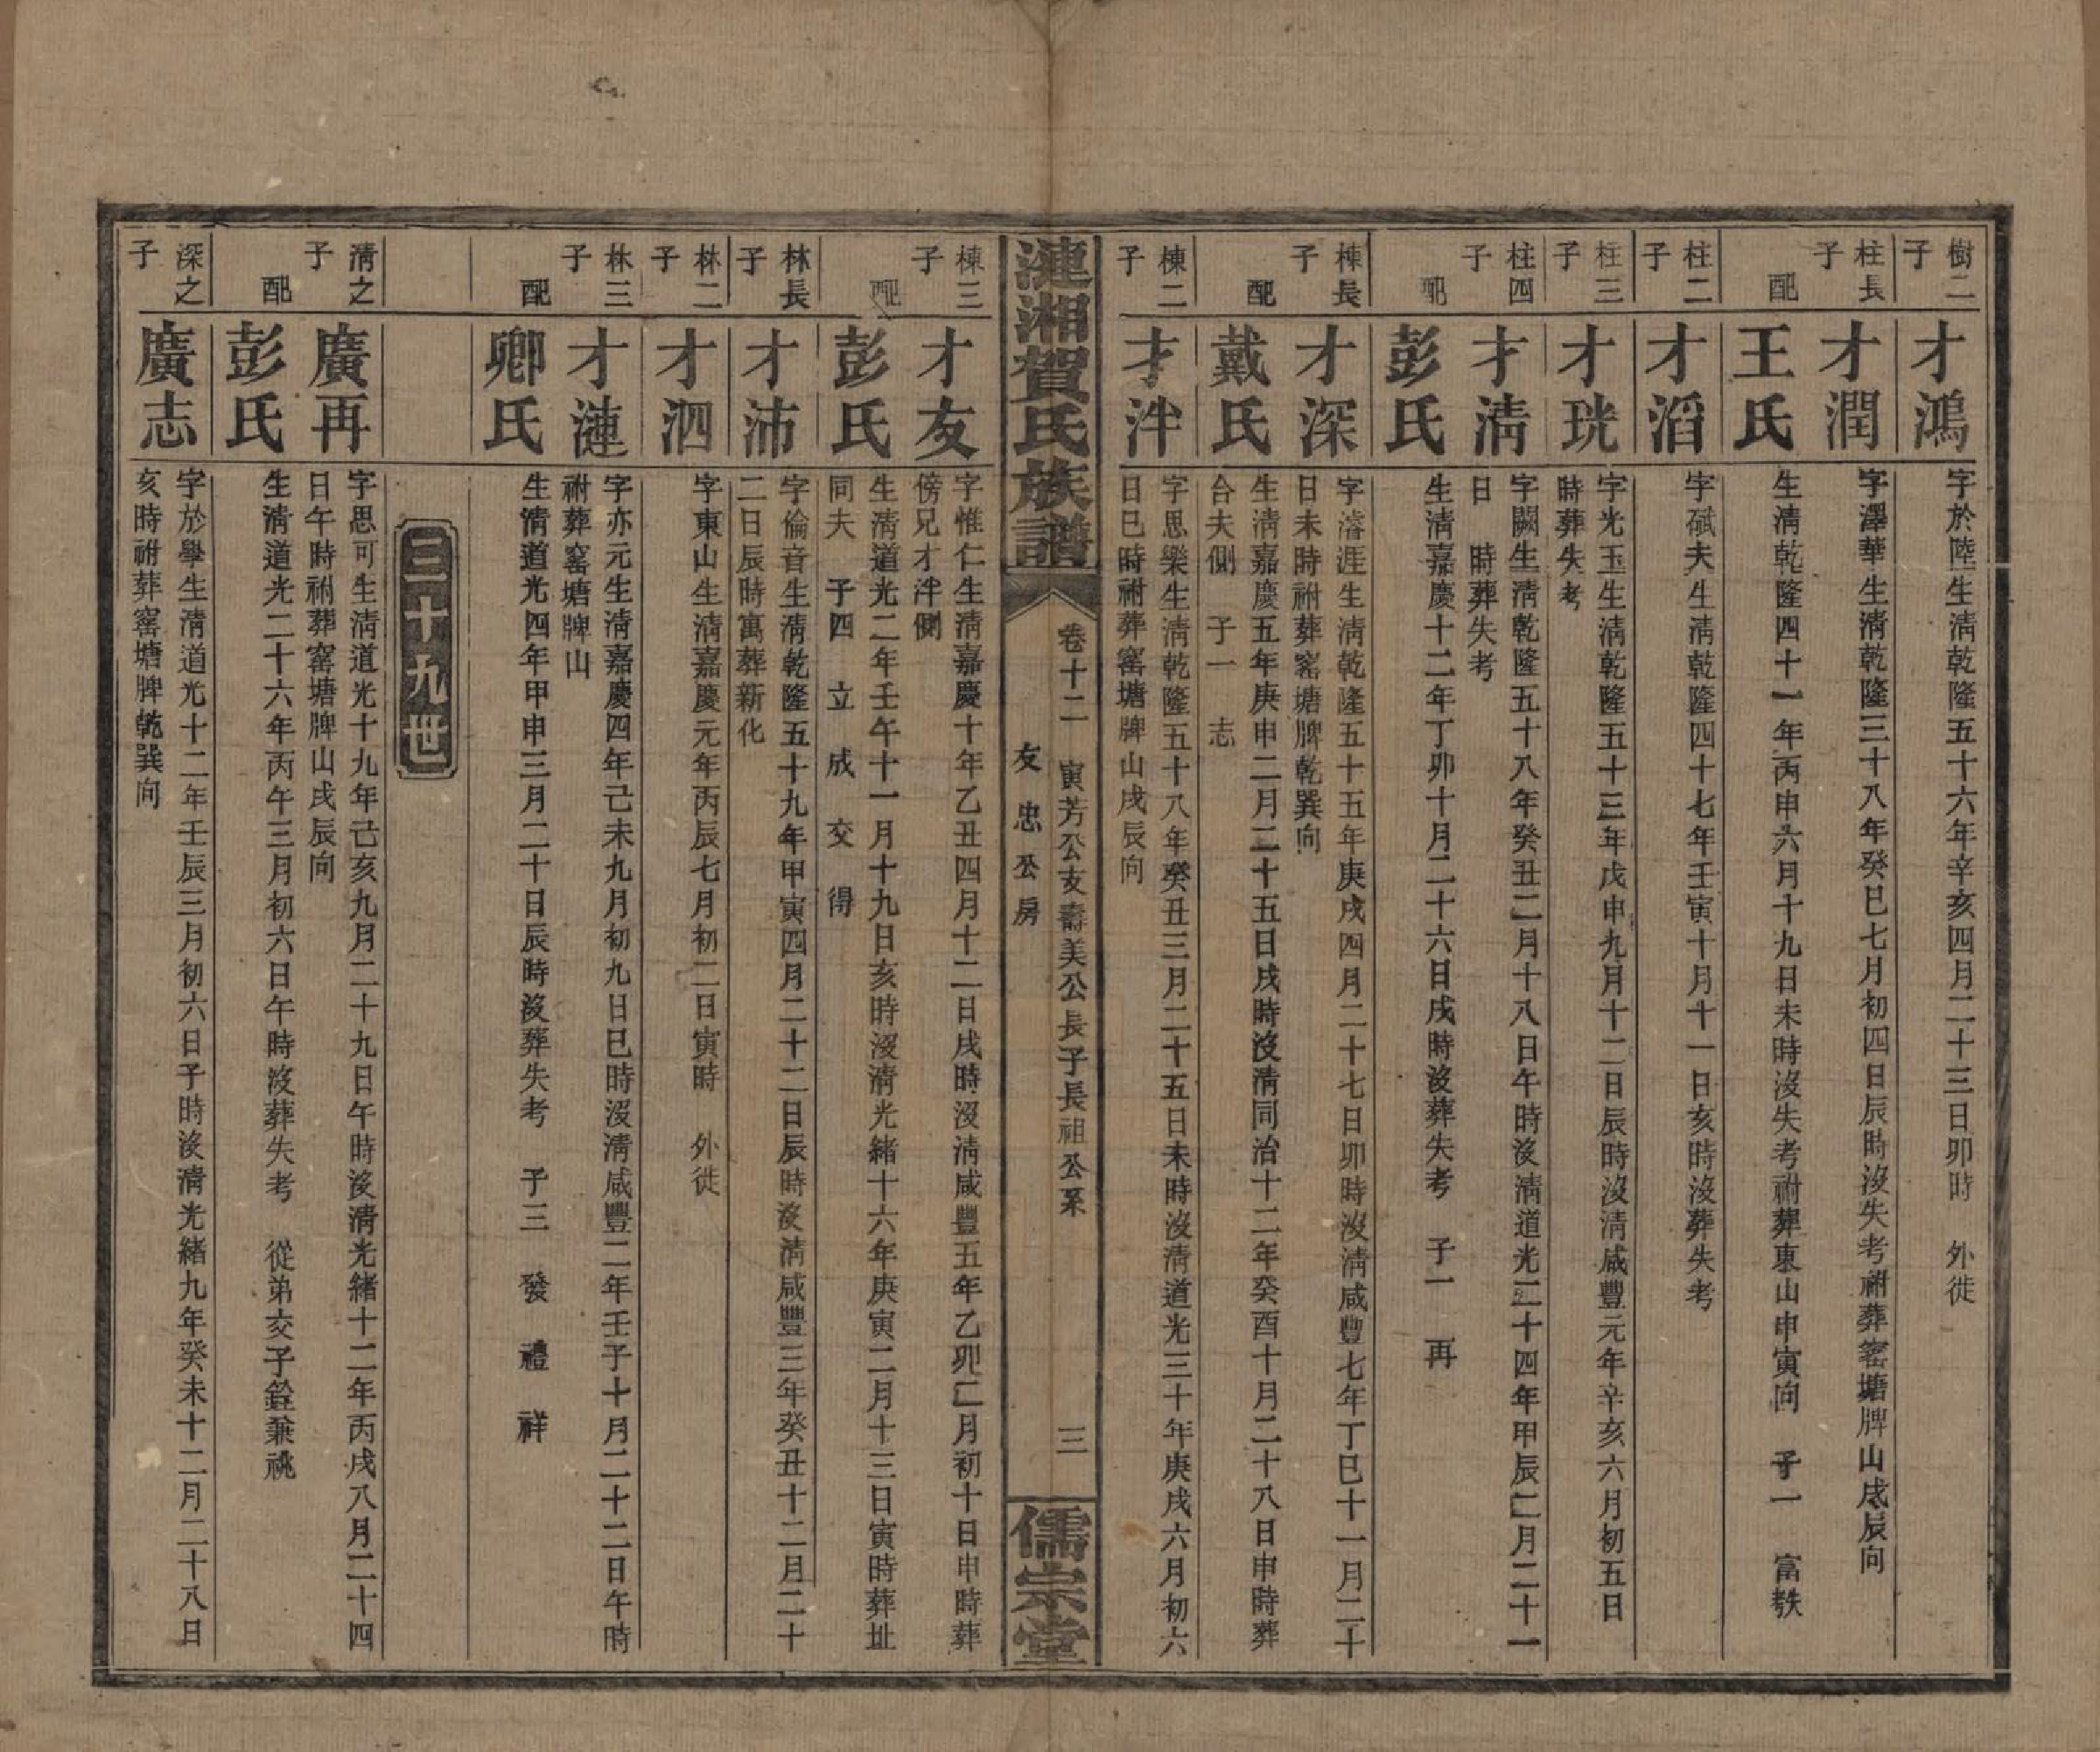 樹二子
才鴻
字於陸生清乾隆五十六年辛亥四月二十三日卯時　外徙
柱長子
才潤
字澤華生清乾隆三十八年癸巳七月初四日辰時沒失考祔葬窰塘牌山戌辰向
配
王氏
生清乾隆四十一年丙申六月十九日未時沒失考祔葬東山申寅向　子一　富軼
柱二子
才滔
字砥夫生清乾隆四十七年壬寅十月十一日亥時沒葬失考
柱三子
才珖
字光玉生清乾隆五十三年戊申九月十二日辰時沒清咸豐元年辛亥六月初五日
時葬失考
柱四子
才清
字闕生清乾隆五十八年癸丑二月十八日午時沒清道光二十四年甲辰二月二十一
日　時葬失考
配
彭氏
生清嘉慶十二年丁卯十月二十六日戌時沒葬失考　子一　再
棟長子
才深
字濬涯生清乾隆五十五年庚戌四月二十七日卯時沒清咸豐七年丁巳十一月二十
日未時祔葬窰塘牌乾巽向
配
戴氏
生清嘉慶五年庚申二月二十五日戌時沒清同治十二年癸酉十月二十八日申時葬
合夫側　子一　志
棟二子
才泮
字思樂生清乾隆五十八年癸丑三月二十五日未時沒清道光三十年庚戌六月初六
日巳時祔葬窰塘牌山戌辰向
漣湘賀氏族譜
卷十二　寅芳公支壽美公長子長祖公系
友忠公房
三
儒宗堂
棟三子
才友
字惟仁生清嘉慶十年乙丑四月十二日戌時沒清咸豐五年乙卯二月初十日申時葬
傍兄才泮側
配
彭氏
生清道光二年壬午十一月十九日亥時沒清光緒十六年庚寅二月十三日寅時葬址
同夫　子四　立　成　交　得
林長子
才沛
字倫音生清乾隆五十九年甲寅四月二十二日辰時沒清咸豐三年癸丑十二月二十
二日辰時寓葬新化
林二子
才泗
字東山生清嘉慶元年丙辰七月初二日寅時　外徙
林三子
才漣
字亦元生清嘉慶四年己未九月初九日巳時沒清咸豐二年壬子十月二十二日午時
祔葬窰塘牌山
配
卿氏
生清道光四年甲申三月二十日辰時沒葬失考　子三　發　禮　祥
三十九世
清之子
廣再
字思可生清道光十九年己亥九月二十九日午時沒清光緒十二年丙戌八月二十四
日午時祔葬窰塘牌山戌辰向
配
彭氏
生清道光二十六年丙午三月初六日午時沒葬失考　從弟交子銓兼祧
深之子
廣志
字於學生清道光十二年壬辰三月初六日子時沒清光緒九年癸未十二月二十八日
亥時祔葬窰塘牌乾巽向